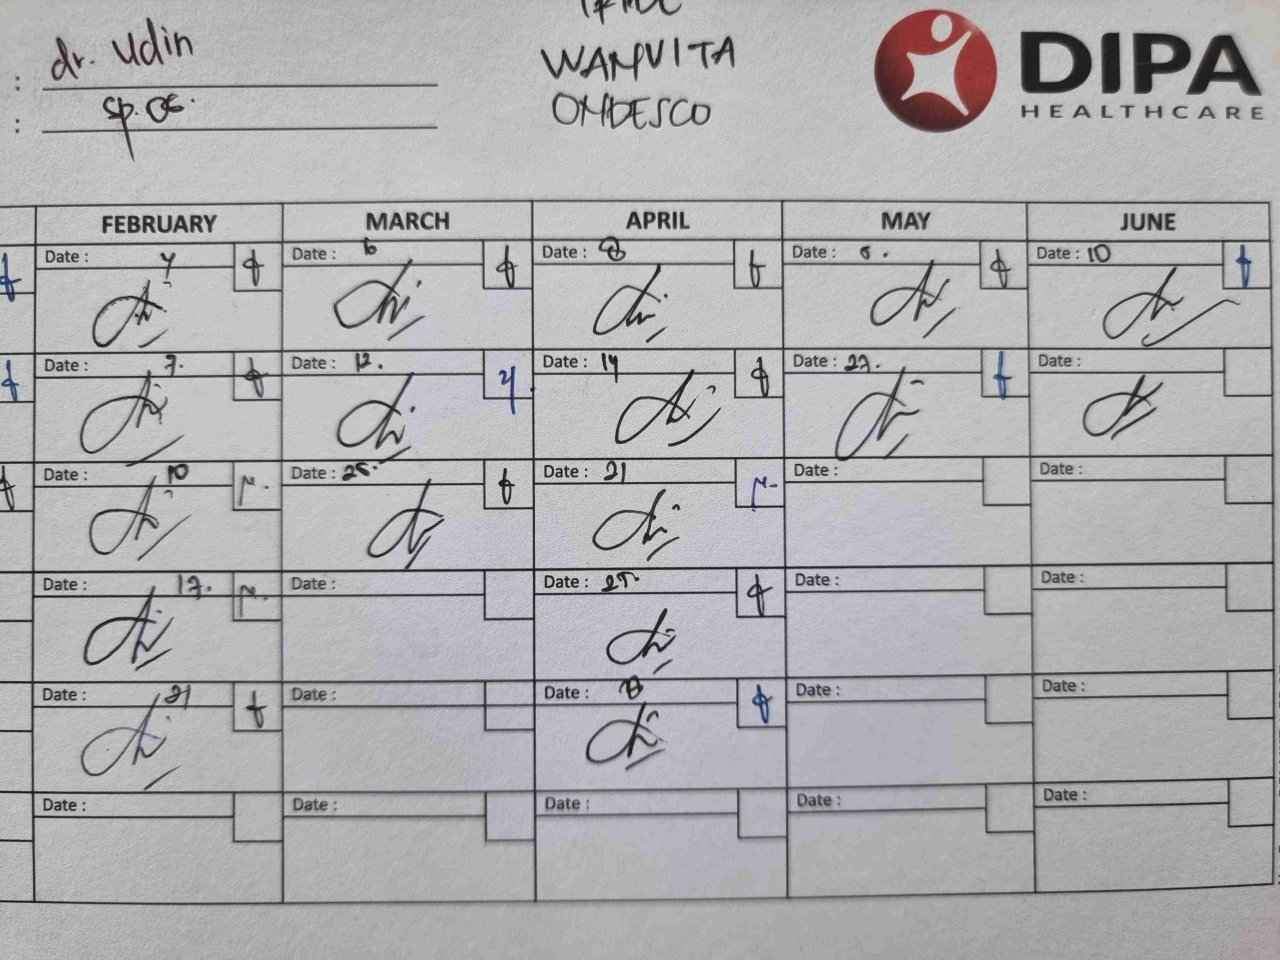 : dr. Udin
: sp. OG.
WANVITA
OMDESCO
DIPA
HEALTHCARE
FEBRUARY MARCH APRIL MAY JUNE
Date : 4 Date : 6 Date : 8 Date : 5. Date : 10
Date : 7. Date : 12. Date : 14 Date : 27. Date :
Date : 10 Date : 25. Date : 21 Date : Date :
Date : 17. Date : Date : 25. Date : Date :
Date : 21 Date : Date : Date : Date :
Date : Date : Date : Date : Date :